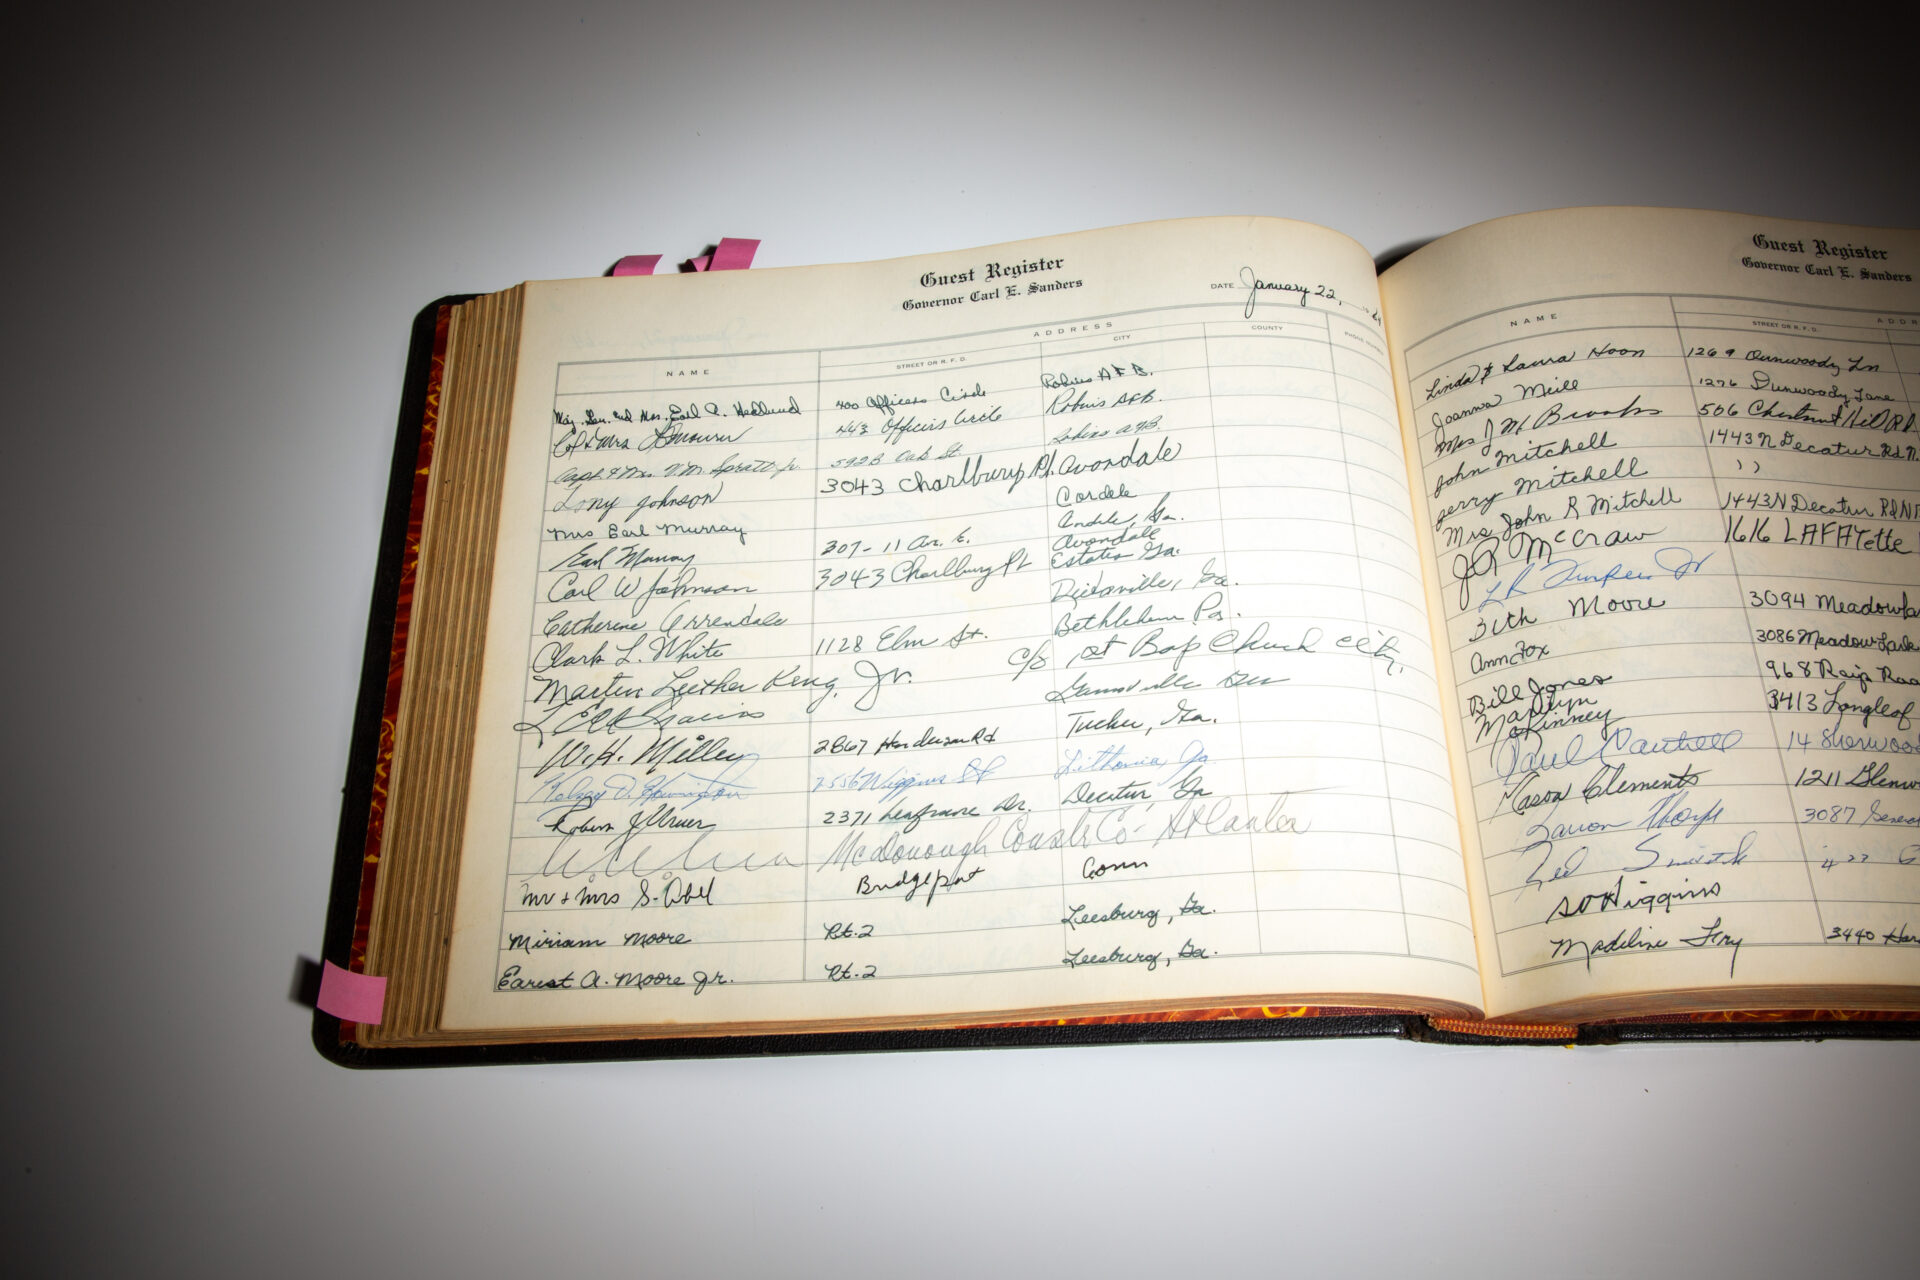 Guest Register
Governor Carl E. Sanders
DATE January 22, 19 64
ADDRESS
NAME STREET OR R. F. D. CITY COUNTY PHONE NUMBER
Maj. Gen. and Mrs. Earl C. Hedlund 400 Officers Circle Robins A F B.
Col & Mrs 443 Officers Circle Robins AFB.
Capt & Mrs. V.M. Spratt Jr. 592B Oak St. Robins AFB.
Tony Johnson 3043 Charlbury Pl. Avondale
Mrs Earl Murray Cordele
Earl Murray 307-11 Av. E. Cordele, Ga.
Carl W Johnson 3043 Charlbury Pl Avondale Estates Ga.
Catherine Arrendale Ga.
Clark L. White 1128 Elm St. Bethlehem Pa.
Martin Luther King, Jr. c/o 1st Bap Church City.
Gainsville
W. H. Milley 2867 Henderson Rd Tucker, Ga.
2556 Wiggins St Lithonia Ga
Robert 2371 Dr. Decatur, Ga
McDonough Const Co- Atlanta
Mr + Mrs S. Abel Bridgeport Conn
Miriam Moore Rt. 2 Leesburg, Ga.
Earnest A. Moore Jr. Rt. 2 Leesburg, Ga.
Guest Register
Governor Carl E. Sanders
ADDR
NAME STREET OR R. F. D.
Linda & Laura Hoon 1269 Dunwoody Ln
Joanna Meill 1276 Dunwoody Lane
Mrs J M Brooks 506 Chestnut Hill Rd.
John Mitchell 1443 N Decatur Rd N.
Jerry Mitchell ))
Mrs John R Mitchell 1443 N Decatur Rd N
JR McCraw 1616 LAFAYette
Jr
Moore 3094 Meadow
Ann Fox 3086 Meadow Lark
Bill Jones 968
Marilyn McKinney 3413 Longleaf
Paul Cantrell 14 Sherwood
Mason Clements 1211 Glenw
Thorpe 3087
422
Higgins
Madeline 3440